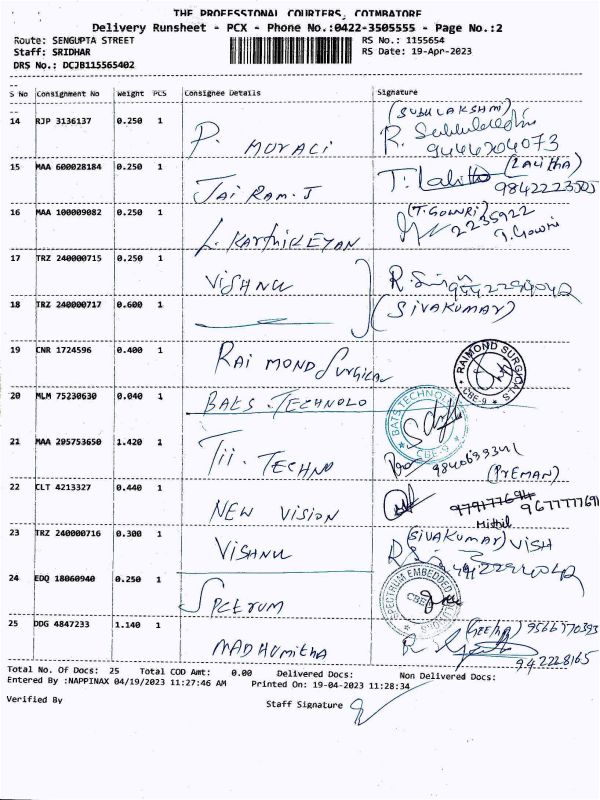 THE PROFESSIONAL COURIERS, COIMBATORE
Delivery Runsheet - PCX - Phone No.:0422-3505555 - Page No.:2
Route: SENGUPTA STREET RS No.: 1155654
Staff: SRIDHAR RS Date: 19-Apr-2023
DRS No.: DCJB115565402
S No Consignment No Weight PCS Consignee Details Signature
14 RJP 3136137 0.250 1 P. MURALI (SUBULAKSHMI)
9444204073
15 MAA 600028184 0.250 1 JAI RAM.J T. Lalitha (LALITHA)
9842223505
16 MAA 100009082 0.250 1 L. KARTHICKEYAN (T.GOWRI) 2235922
T. Gowri
17 TRZ 240000715 0.250 1 VISHNU
18 TRZ 240000717 0.600 1 (SIVAKUMAR)
19 CNR 1724596 0.400 1 RAIMOND SURGICAL RAIMOND SURGICALS CBE-9
20 MLM 75230630 0.040 1 BATS. TECHNOLO BATS TECHNOLO CBE-9
21 MAA 295753650 1.420 1 Tii. TECHNO 9840639341
(PREMAN)
22 CLT 4213327 0.440 1 NEW VISION 9791777694
23 TRZ 240000716 0.300 1 VISHNU (SIVAKUMAR) VISH
24 EDQ 18060940 0.250 1 SPCTRUM SPECTRUM EMBEDDED CBE
25 DDG 4847233 1.140 1 MADHUMITHA (GEETHA) 9566770393
942228165
Total No. Of Docs: 25 Total COD Amt: 0.00 Delivered Docs: Non Delivered Docs:
Entered By :NAPPINAX 04/19/2023 11:27:46 AM Printed On: 19-04-2023 11:28:34
Verified By Staff Signature